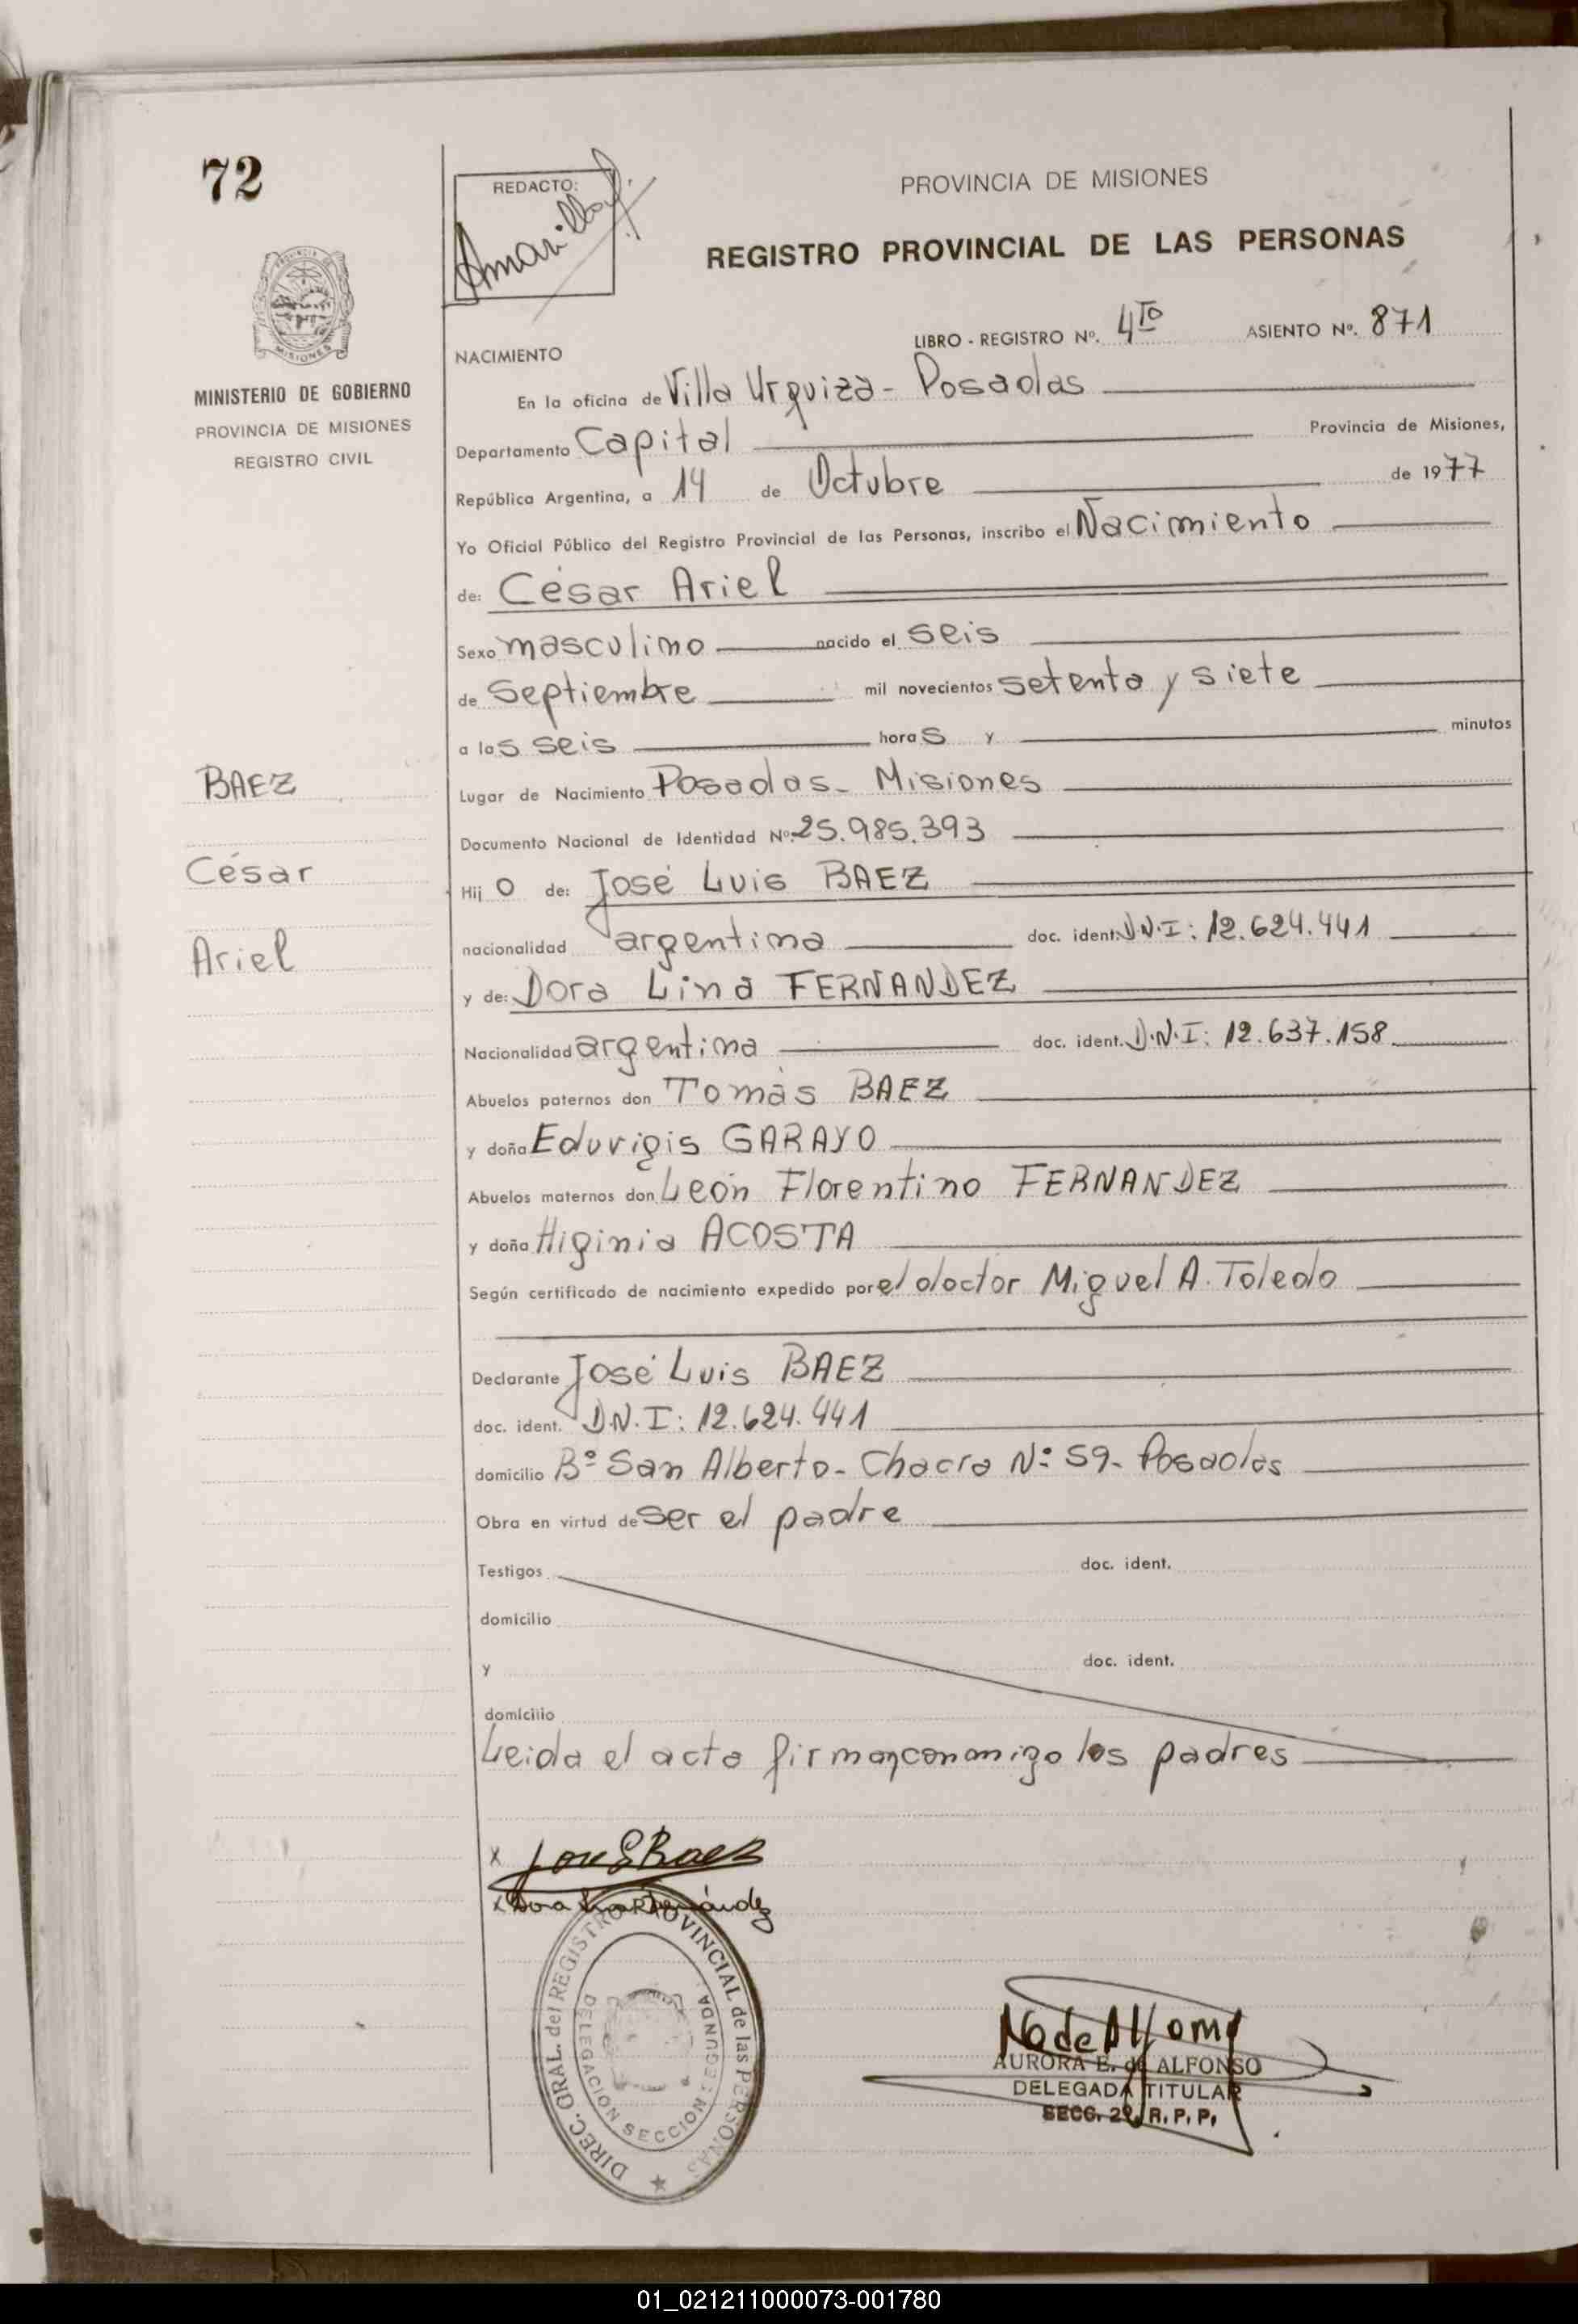 72
REDACTO:
PROVINCIA DE MISIONES
REGISTRO PROVINCIAL DE LAS PERSONAS
MISIONES
MINISTERIO DE GOBIERNO
PROVINCIA DE MISIONES
REGISTRO CIVIL
LIBRO - REGISTRO Nº. 4TO ASIENTO Nº. 871
NACIMIENTO
En la oficina de Villa Urquiza - Posadas
Departamento Capital Provincia de Misiones,
República Argentina, a 14 de Octubre de 1977
Yo Oficial Público del Registro Provincial de las Personas, inscribo el Nacimiento
de: César Ariel
Sexo masculino nacido el seis
de Septiembre mil novecientos setenta y siete
a las seis horas y minutos
BAEZ
Lugar de Nacimiento Posadas - Misiones
Documento Nacional de Identidad Nº. 25.985.393
César
Hijo de: José Luis BAEZ
Ariel
nacionalidad argentina doc. ident. D.N.I: 12.624.441
y de: Dora Lina FERNANDEZ
Nacionalidad argentina doc. ident. D.N.I: 12.637.158
Abuelos paternos don Tomás BAEZ
y doña Eduvigis GARAYO
Abuelos maternos don León Florentino FERNANDEZ
y doña Higinia ACOSTA
Según certificado de nacimiento expedido por el doctor Miguel A. Toledo
Declarante José Luis BAEZ
doc. ident. D.N.I: 12.624.441
domicilio Bº San Alberto - Chacra Nº 59 - Posadas
Obra en virtud de ser el padre
Testigos doc. ident.
domicilio
y doc. ident.
domicilio
Leida el acta firman conmigo los padres
x José L Baez
x Dora Lina Fernández
DIREC. GRAL. del REGISTRO PROVINCIAL de las PERSONAS
DELEGACION SECCION SEGUNDA
AURORA E. de ALFONSO
DELEGADA TITULAR
SECC. 2ª. R. P. P.
01_021211000073-001780